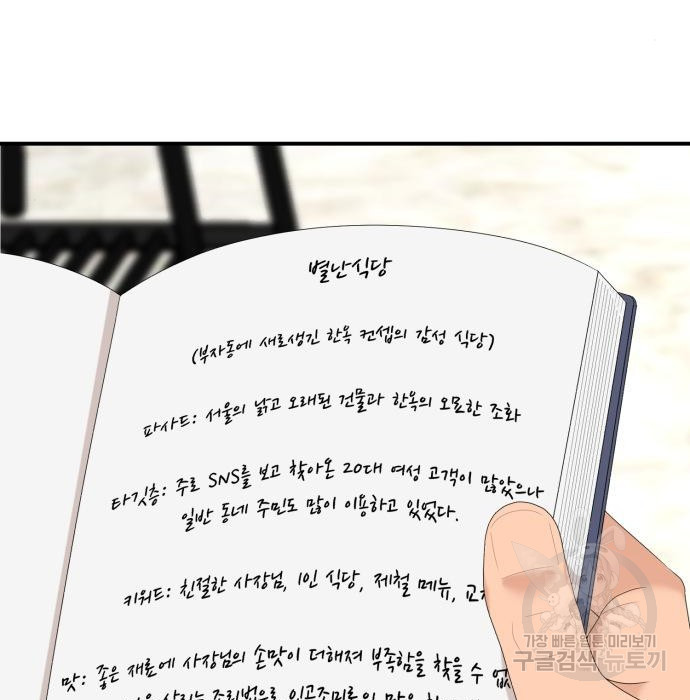 별난식당
(부자동에 새로생긴 한옥 컨셉의 감성 식당)
파사드: 서울의 낡고 오래된 건물과 한옥의 오묘한 조화
타깃층: 주로 SNS를 보고 찾아온 20대 여성 고객이 많았으나
일반 동네 주민도 많이 이용하고 있었다.
키워드: 친절한 사장님, 1인 식당, 제철 메뉴,
맛: 좋은 재료에 사장님의 손맛이 더해져 부족함을 찾을 수
조리법으로 인공조미료의 맛은
가장 빠른 웹툰 미리보기
구글검색 뉴토끼